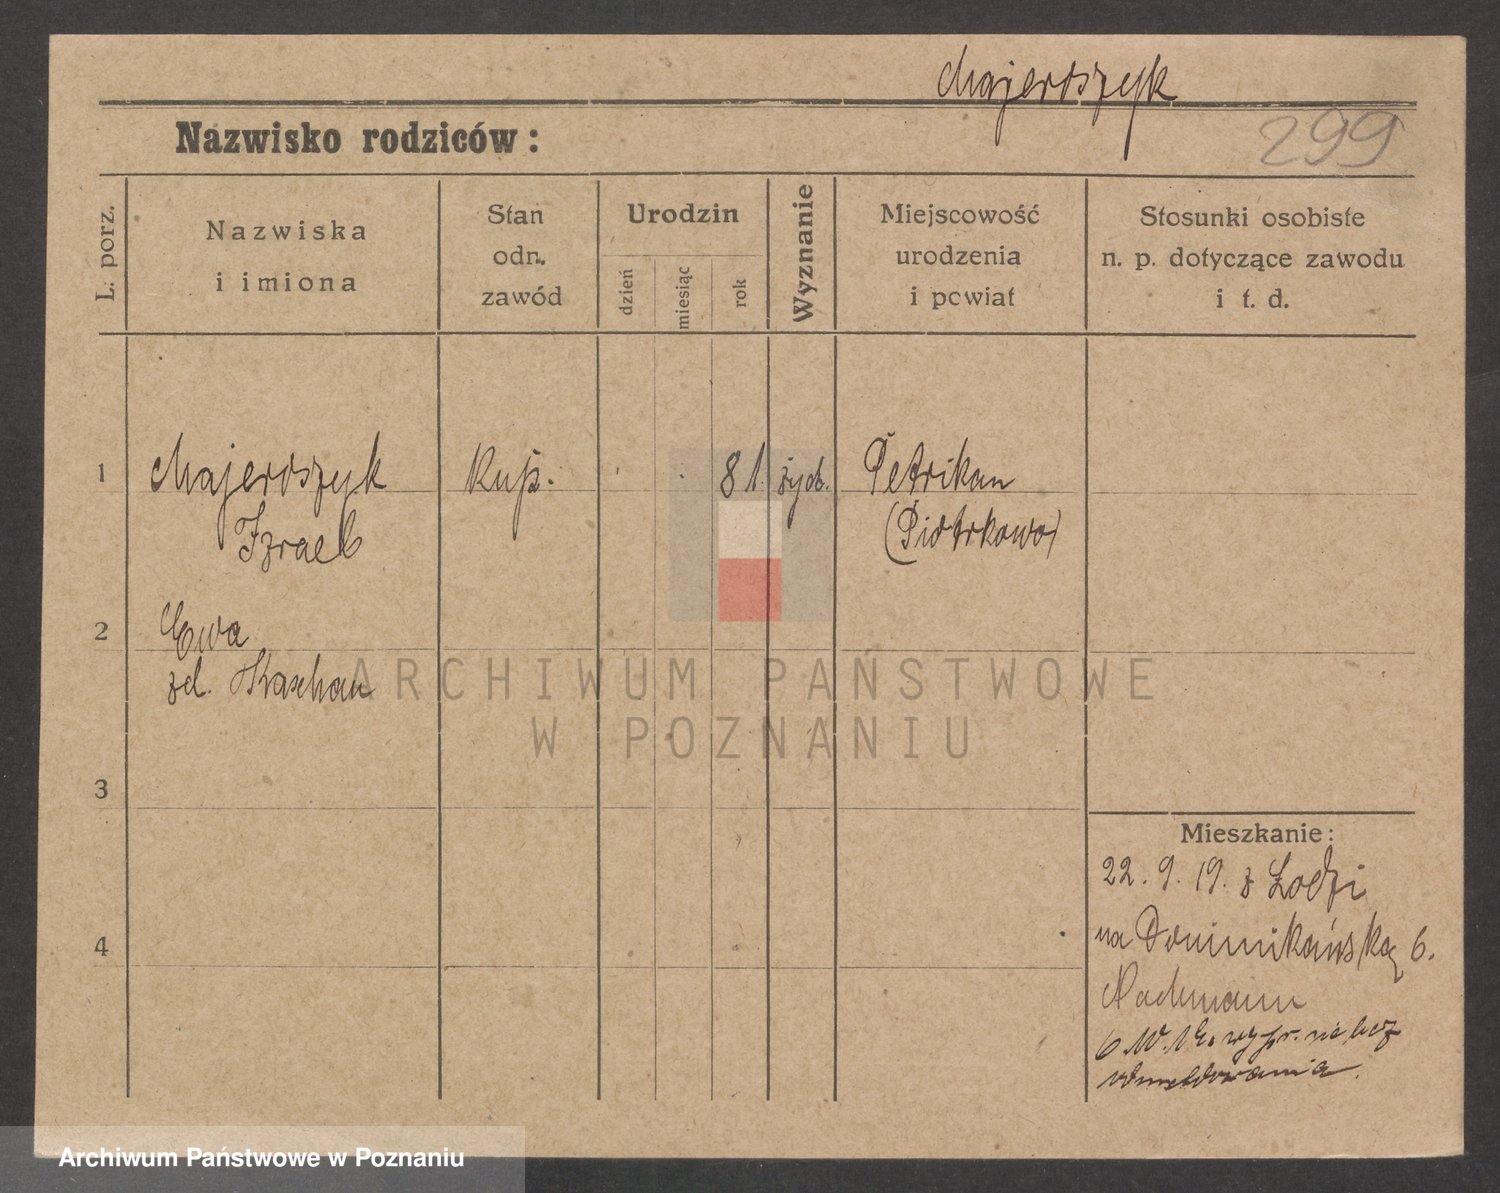 Majeroszyk
Nazwisko rodziców:
299
L. porz.
Nazwiska
i imiona
Stan
odn.
zawód
Urodzin
dzień
miesiąc
rok
Wyznanie
Miejscowość
urodzenia
i powiat
Stosunki osobiste
n. p. dotyczące zawodu
i t. d.
1
Majeroszyk
Izrael
Kup.
81.
żyd.
Petrikau
(Piotrkowo)
2
Ewa
zd. Kaschau
3
4
Mieszkanie:
22. 9. 19. z Łodzi
na Dominikańską 6.
Nachmann
wypr. się bez
odmeldowania.
ARCHIWUM PAŃSTWOWE
W POZNANIU
Archiwum Państwowe w Poznaniu